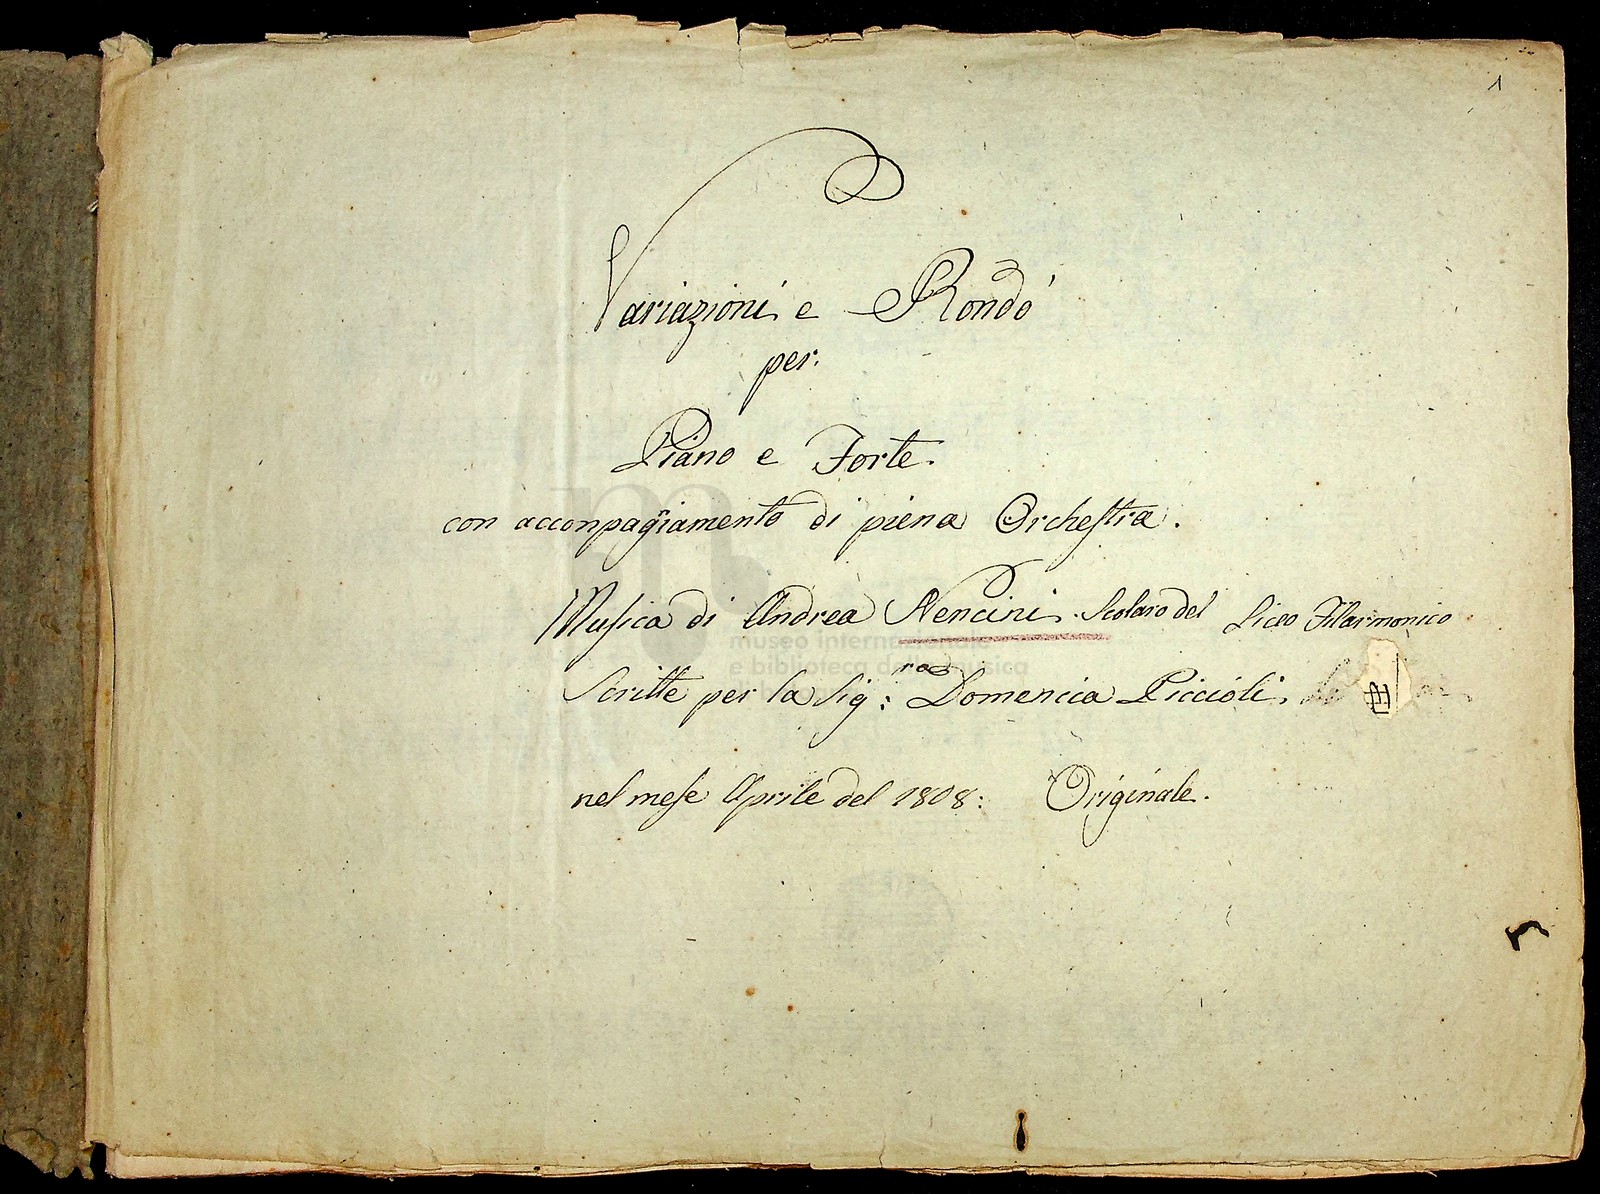 1
Variazioni e Rondó
per
Piano e Forte.
con acconpagniamento di piena Orchestra.
Musica di Andrea Nencini Scolaro del Liceo Filarmonico
Scritte per la Sig:ra Domencia Piccioli
nel mese Aprile del 1808: Originale.
museo internazionale
e biblioteca della musica